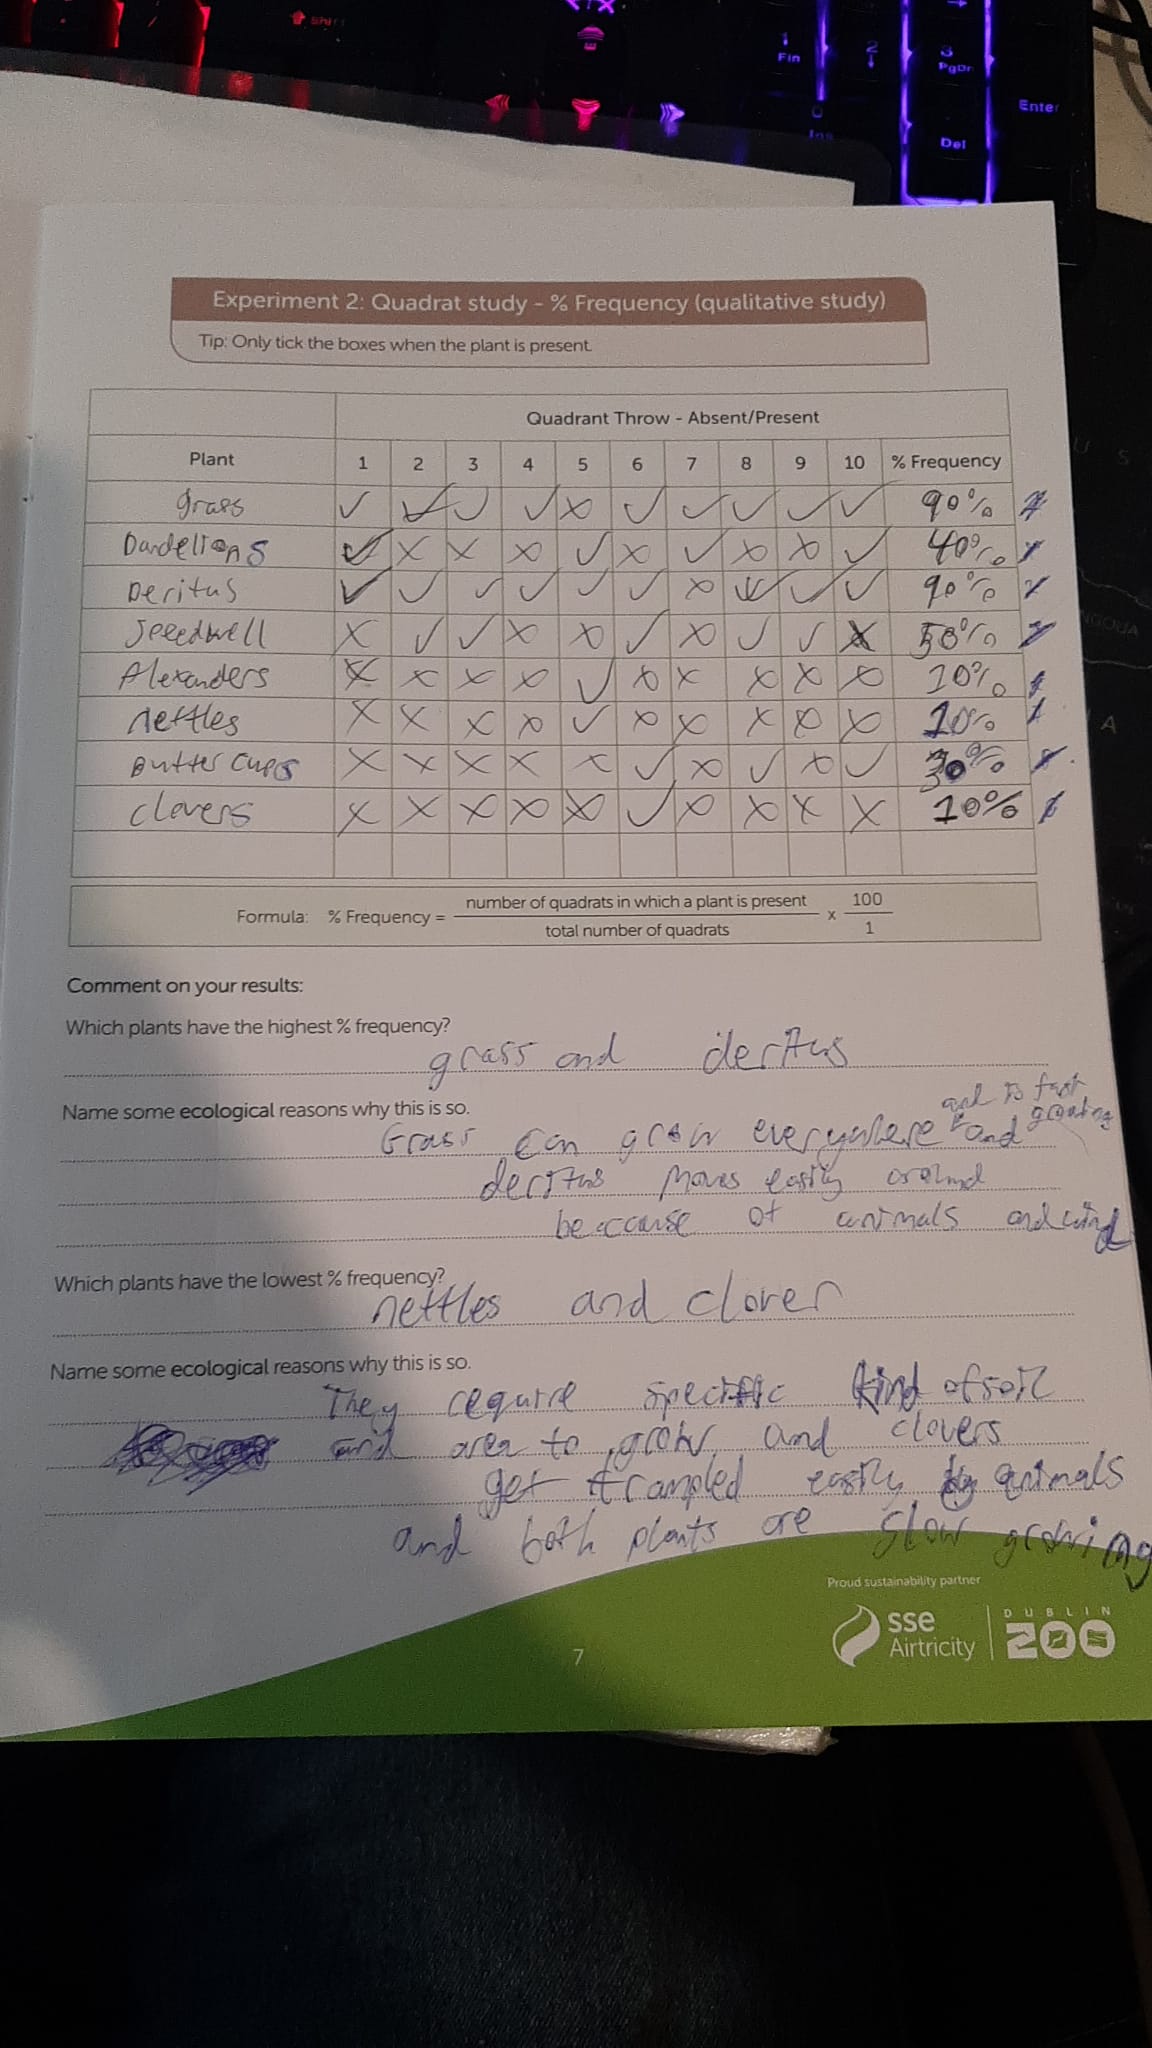 Shift
1
Fin
2
3
PgDn
Enter
0
Ins
Del
Experiment 2: Quadrat study - % Frequency (qualitative study)
Tip: Only tick the boxes when the plant is present.
Quadrant Throw - Absent/Present
Plant 1 2 3 4 5 6 7 8 9 10 % Frequency
grass ✓ ✓ ✓ ✓ X ✓ ✓ ✓ ✓ ✓ 90%
Dandelions ✓ X X X ✓ X ✓ X X ✓ 40%
Deritus ✓ ✓ ✓ ✓ ✓ ✓ X ✓ ✓ ✓ 90%
Speedwell X ✓ ✓ X X ✓ X ✓ ✓ X 50%
Alexanders X X X X ✓ X X X X X 10%
nettles X X X X ✓ X X X X X 10%
Butter cups X X X X X ✓ X ✓ X ✓ 30%
clovers X X X X X ✓ X X X X 10%
Formula: % Frequency = number of quadrats in which a plant is present x 100
total number of quadrats 1
Comment on your results:
Which plants have the highest % frequency?
grass and deritus
Name some ecological reasons why this is so.
and is fast
growing
Grass can grow everywhere and
deritus moves easily around
beacause of animals and wind
Which plants have the lowest % frequency?
nettles and clover
Name some ecological reasons why this is so.
They require specific kind of soil
and area to grow, and clovers
get trampled easily by animals
and both plants are slow growing
Proud sustainability partner
sse
Airtricity
DUBLIN
ZOO
7